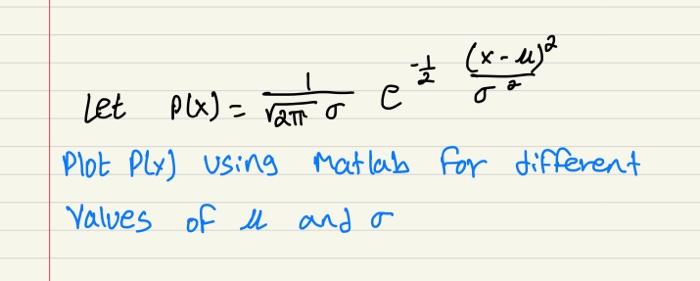 Let P(x) = 1/(√2π σ) e^(-1/2 (x-μ)²/σ²)
Plot P(x) using Matlab for different
Values of μ and σ